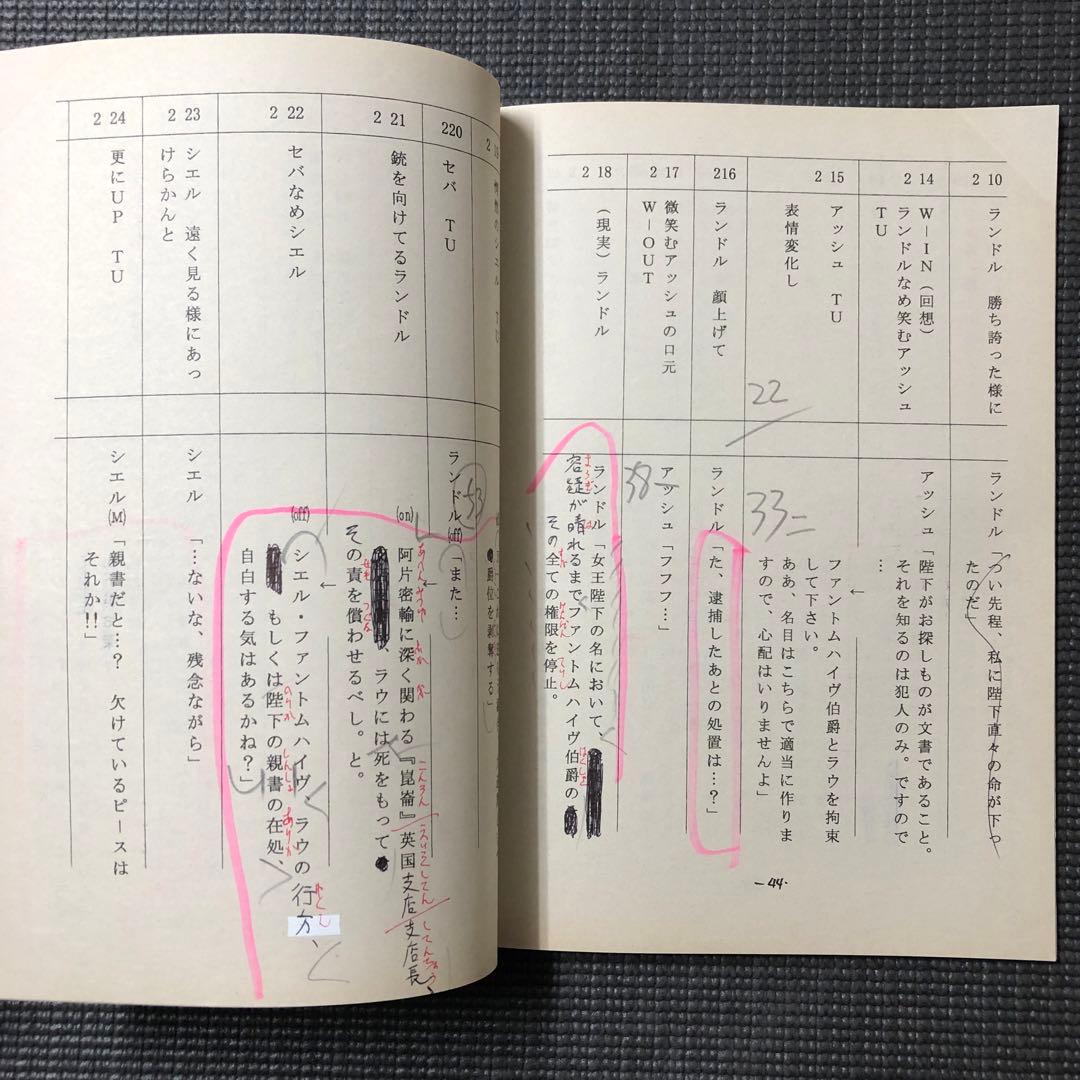 2 10
ランドル 勝ち誇った様に
ランドル「つい先程、私に陛下直々の命が下っ
たのだ」
2 14
W－IN（回想）
ランドルなめ笑むアッシュ
TU
アッシュ「陛下がお探しものが文書であること。
それを知るのは犯人のみ。ですので
…
2 15
アッシュ TU
表情変化し
↓
ファントムハイヴ伯爵とラウを拘束
して下さい。
ああ、名目はこちらで適当に作りま
すので、心配はいりませんよ」
22
33=
216
ランドル 顔上げて
ランドル「た、逮捕したあとの処置は…？」
2 17
微笑むアッシュの口元
W－OUT
アッシュ「フフフ…」
38
2 18
（現実）ランドル
ランドル「女王陛下の名において、
容疑が晴れるまでファントムハイヴ伯爵の
その全ての権限を停止。
ようぎ
は
すべ
けんげん
ていし
はくしゃく
－44・
2 19
シエル TU
爵位を剥奪する」
220
セバ TU
ランドル(off)「また…
53
2 21
銃を向けてるランドル
(on)
阿片密輸に深く関わる『崑崙』英国支店支店長
、ラウには死をもって
その責を償わせるべし。と。
あへんみつゆ
こんろん
えいこくしてん
してんちょう
せめ
つぐな
2 22
セバなめシエル
(off)
↓
シエル・ファントムハイヴ、ラウの行方、
もしくは陛下の親書の在処、
自白する気はあるかね？」
ゆくえ
しんしょ
ありか
2 23
シエル 遠く見る様にあっ
けらかんと
シエル「…ないな、残念ながら」
2 24
更にUP TU
シエル(M)「親書だと…？ 欠けているピースは
それか!!」